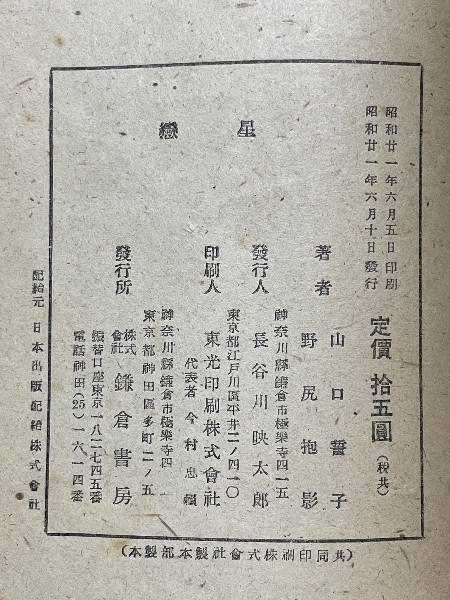 昭和廿一年六月五日印刷
昭和廿一年六月十日發行
定價 拾五圓 (稅共)
星戀
著者 山口誓子
野尻抱影
神奈川縣鎌倉市極樂寺四一五
發行人 長谷川映太郎
東京都江戸川區平井二ノ四一〇
印刷人 東光印刷株式會社
代表者 今村忠
神奈川縣鎌倉市極樂寺四一
東京都神田區多町二ノ五
發行所 株式會社 鎌倉書房
振替口座東京一八二七四五番
電話神田(25)一六一四番
配給元 日本出版配給株式會社
(共同印刷株式會社製本部製本)